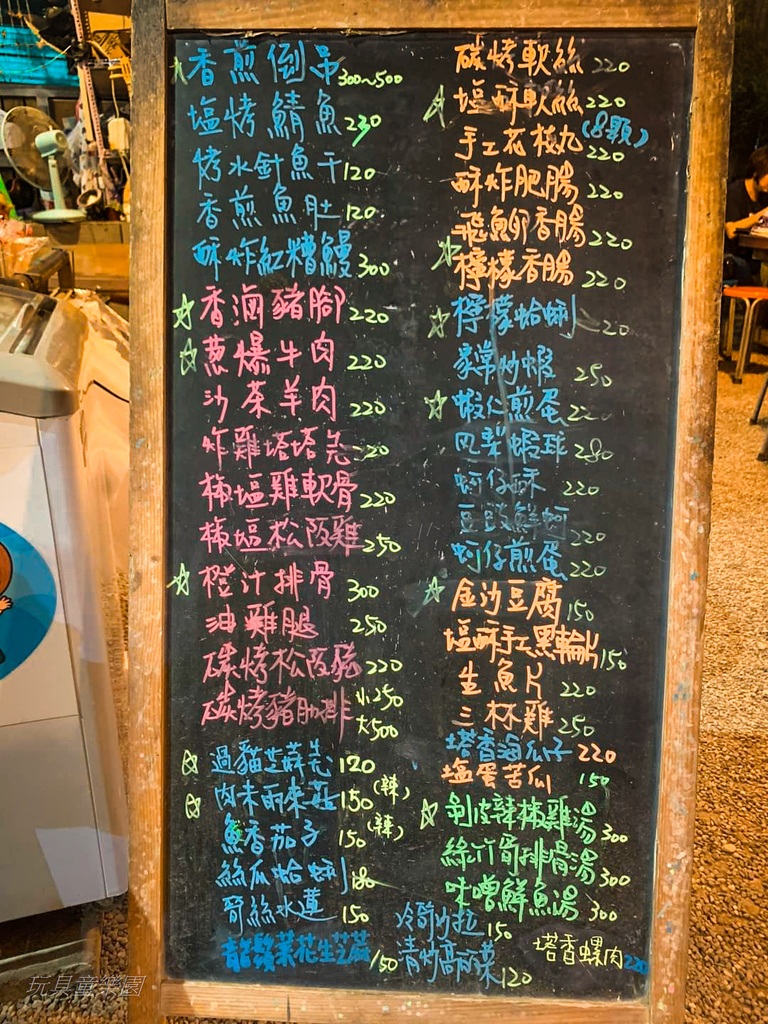 香煎倒吊300~500
塩烤鯖魚230
烤水針魚干120
香煎魚肚120
酥炸紅糟鰻300
香滷豬腳220
蔥爆牛肉220
沙茶羊肉220
炸雞塔塔先220
椒塩雞軟骨220
椒塩松阪雞250
橙汁排骨300
油雞腿250
碳烤松阪豬220
碳烤豬肋排 小250 大500
過貓芝蔴先120
肉末雨來菇150(辣)
魚香茄子150(辣)
絲瓜蛤蜊180
筍絲水蓮150
龍鬚菜花生芝蔴150
碳烤軟絲220
塩酥軟絲220
手工花枝丸(8顆)220
酥炸肥腸220
飛魚卵香腸220
檸檬香腸220
檸檬蛤蜊220
家常炒蝦250
蝦仁煎蛋22
鳳梨蝦球280
蚵仔酥220
豆豉鮮蚵220
蚵仔煎蛋220
金沙豆腐150
塩酥手工黑輪片150
生魚片220
三杯雞250
塔香海瓜子220
塩蛋苦瓜150
剝皮辣椒雞湯300
綠竹筍排骨湯300
味噌鮮魚湯300
冷筍沙拉150
清炒高麗菜120
塔香螺肉220
玩具童樂園